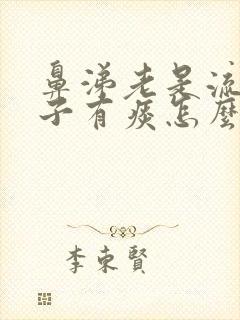 鼻涕老是流
子有痰怎麼
李東賢